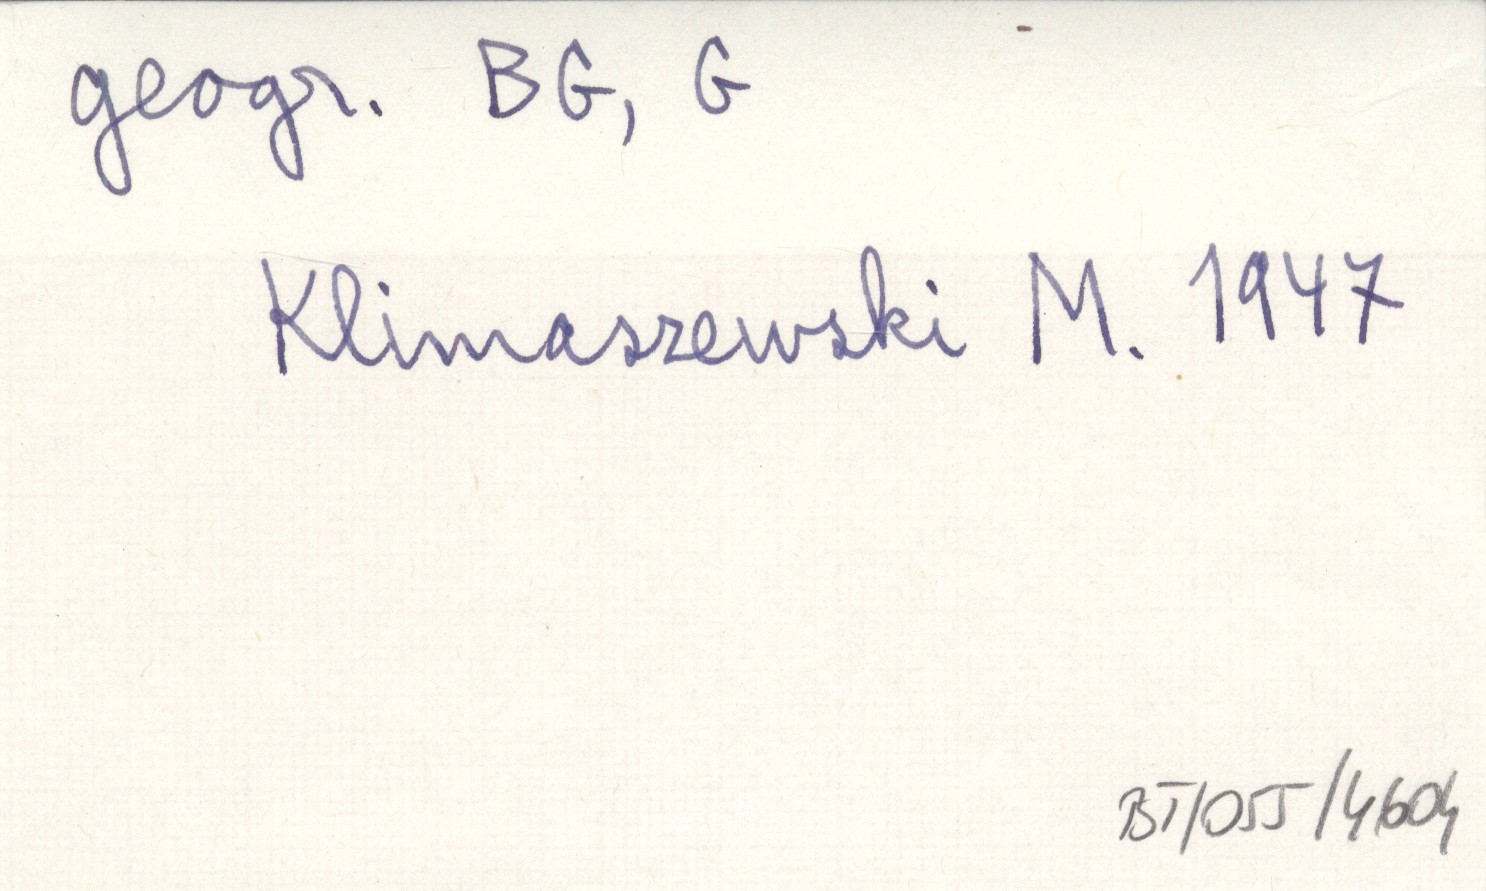 geogr. BG, G
Klimaszewski M. 1947
BT/055/4604